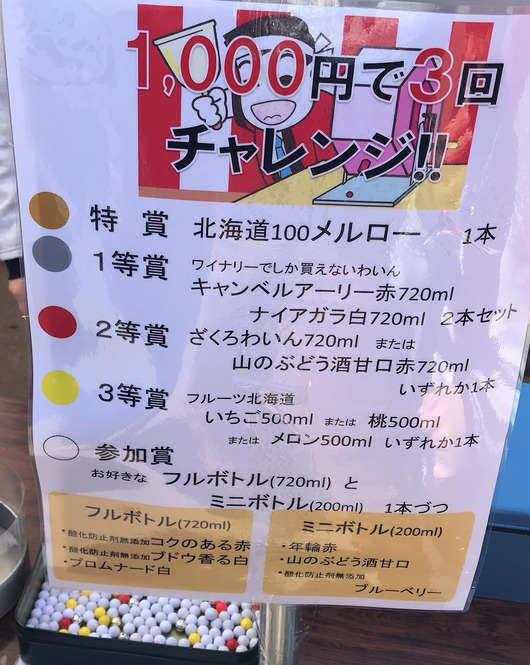 1,000円で3回
チャレンジ!!
特 賞 北海道100メルロー 1本
1等賞 ワイナリーでしか買えないわいん
キャンベルアーリー赤720ml
ナイアガラ白720ml 2本セット
2等賞 ざくろわいん720ml または
山のぶどう酒甘口赤720ml
いずれか1本
3等賞 フルーツ北海道
いちご500ml または 桃500ml
または メロン500ml いずれか1本
参加賞
お好きな フルボトル(720ml) と
ミニボトル(200ml) 1本づつ
フルボトル(720ml)
・酸化防止剤無添加コクのある赤
・酸化防止剤無添加ブドウ香る白
・プロムナード白
ミニボトル(200ml)
・年輪赤
・山のぶどう酒甘口
・酸化防止剤無添加
ブルーベリー